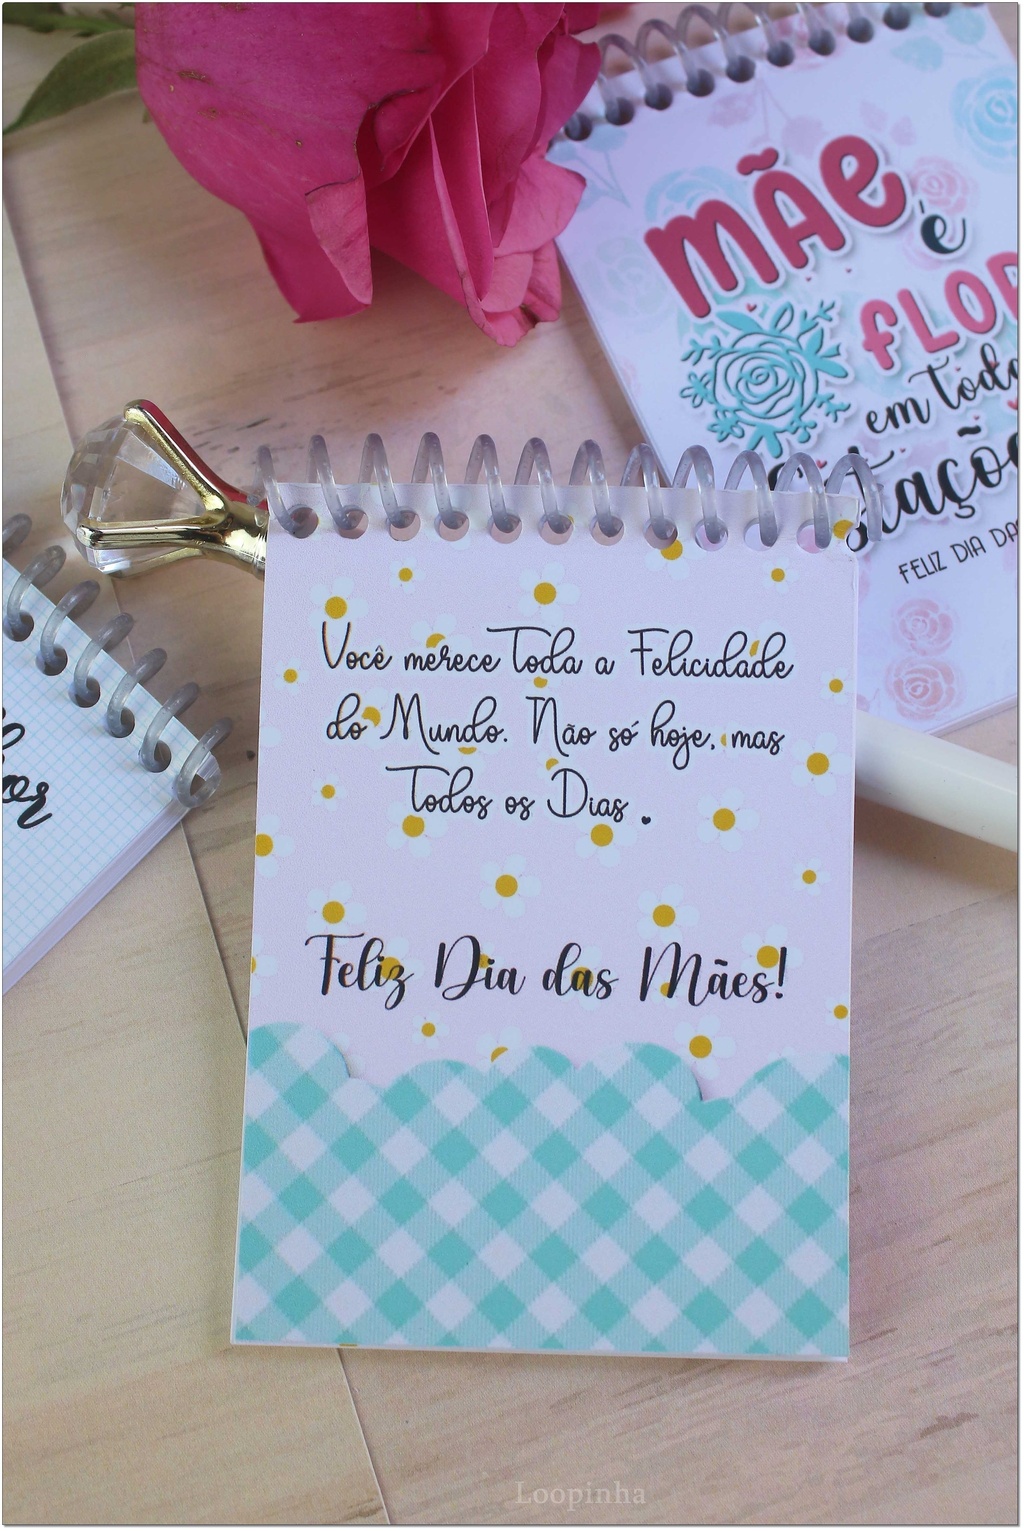 MÃE
é
FLOR
em toda
FELIZ DIA DA
Você merece Toda a Felicidade
do Mundo. Não só hoje, mas
Todos os Dias.
Feliz Dia das Mães!
Loopinha